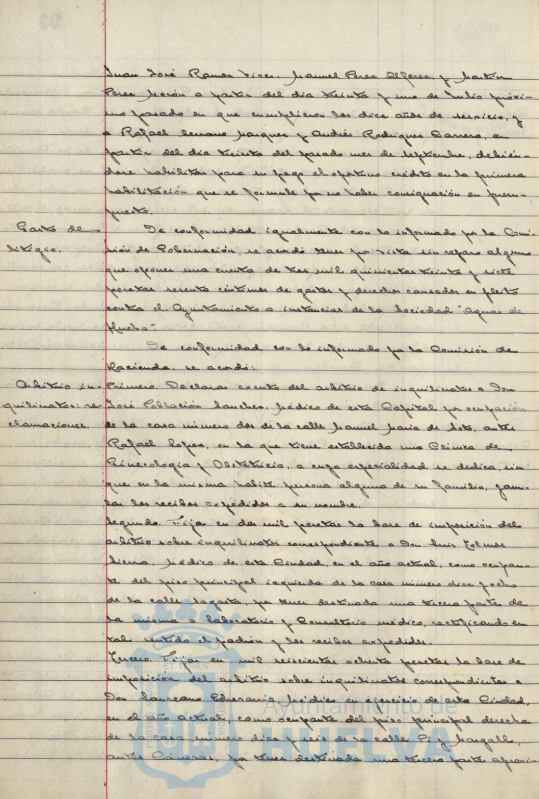 Juan José Ramos Vives, Manuel Perea Alferez, y Martín
Perea Morón a partir del dia treinta y uno de Julio próxi-
mo pasado en que cumplieron los diez años de servicio, y
a Rafael Serrano Marquez y Andrés Rodriguez Carrero, a
partir del dia treinta del pasado mes de Septiembre, debién-
dose habilitar para su pago el oportuno crédito en la primera
habilitación que se formule por no haber consignación en presu-
puesto.
Gasto de
litigio.
De conformidad igualmente con lo informado por la Comi-
sión de Gobernación, se acordó tener por vista sin reparo alguno
que oponer una cuenta de tres mil quinientas treinta y siete
pesetas sesenta céntimos de gastos y derechos causados en pleito
contra el Ayuntamiento a instancias de la Sociedad "Aguas de
Huelva".
De conformidad con lo informado por la Comisión de
Hacienda, se acordó:
Arbitrio in-
quilinatos: re-
clamaciones.
Primero. Declarar exento del arbitrio de inquilinatos a Don
José Población Sanchez, Médico de esta Capital por ocupación
de la casa número dos de la calle Manuel Maria de Soto, antes
Rafael Lopez, en la que tiene establecida una Clínica de
Ginecología y Obstetricia, a cuya especialidad se dedica, sin
que en la misma habite persona alguna de su familia,
los recibos expedidos a su nombre.
Segundo. Fijar en dos mil pesetas la base de imposición del
arbitrio sobre inquilinatos correspondiente a Don Luis
Sierra, Médico de esta Ciudad, en el año actual, como ocupan-
te del piso principal izquierda de la casa número diez y ocho
de la calle Sagasta, por tener destinada una tercera parte de
la misma a laboratorio y Consultorio médico, rectificando en
tal sentido el padrón y los recibos expedidos.
Tercero. Fijar en mil seiscientas ochenta pesetas la base de
imposición del arbitrio sobre inquilinatos correspondientes a
Don Laureano Médico en ejercicio de esta Ciudad,
en el año actual, como ocupante del piso principal derecha
de la casa número diez y seis de la calle Pi y Margall,
antes Cánovas, por tener destinada una tercera parte aproxi-
Ayuntamiento de
HUELVA